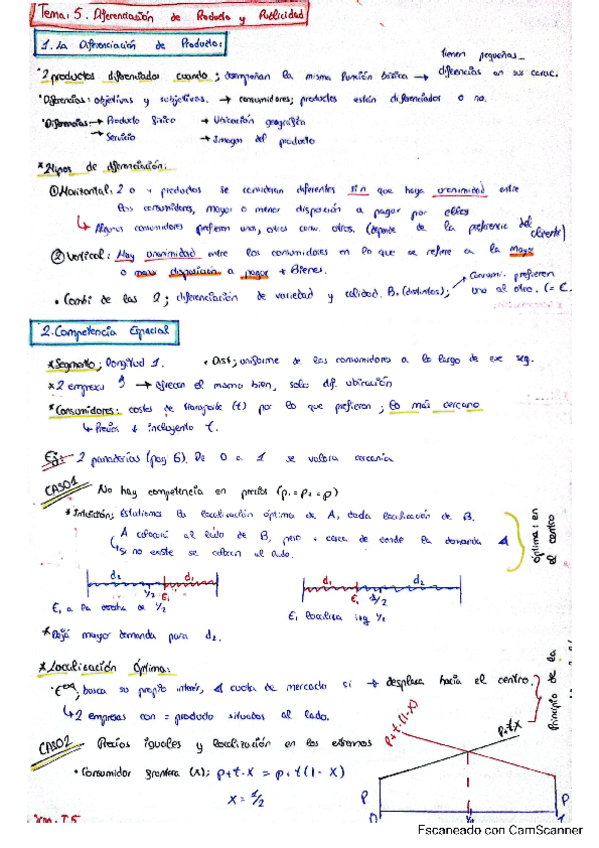 Tema: 5. Diferenciación de Producto y Publicidad
1. La Diferenciación de Producto:
*2 productos diferenciados cuando; desempeñan la misma función básica → tienen pequeñas diferencias en sus carac.
*Diferencias: objetivas y subjetivas. → consumidores; productos están diferenciados o no.
*Diferencias: → Producto físico → Ubicación geográfica
→ Servicio → Imagen del producto
*Tipos de diferenciación:
① Horizontal: 2 o + productos se consideran diferentes sin que haya unanimidad entre
los consumidores, mayor o menor disposición a pagar por ellos
↳ Algunos consumidores prefieren uno, otros cons. otros. (depende de la preferencia del cliente)
② Vertical: Hay unanimidad entre los consumidores en lo que se refiere a la mayor
o menor disposición a pagar + Bienes.
• Combi de las 2; diferenciación de variedad y calidad. B. (distintos); Consumi. prefieren
uno al otro. (= C.
2. Competencia Espacial
*Segmento; longitud 1. • Dist; uniforme de los consumidores a lo largo de ese seg.
*2 empresas → ofrecen el mismo bien, solo dif. ubicación
*Consumidores: costes de transporte (t) por lo que prefieren; lo más cercano
↳ Precios + incluyendo t.
2 panaderías (pag 6). De 0 a 1 se valora cercanía
CASO1 No hay competencia en precios (p₁ = p₂ = p)
*Intuición; Estudiamos la localización óptima de A, dada localización de B.
A colocará al lado de B, pero + cerca de donde la demanda
↳ Si no existe se colocan al lado.
óptima: en el centro
d₂ d₁
1/2 E₁
E₁ a la derecha de 1/2
d₁ d₂
E₁ 1/2
E₁ localiza izq 1/2
mayor demanda para d₂.
*Localización Óptima:
busca su propio interés, cuota de mercado si → desplaza hacia el centro.
↳ 2 empresas con = producto situados al lado.
Principio de la
CASO2 Precios iguales y localización en los extremos
• Consumidor frontera (x): p+t·x = p+t(1-x)
x = 1/2
p+t·(1-x)
p+t·x
P P
0 1/2 1
Escaneado con CamScanner